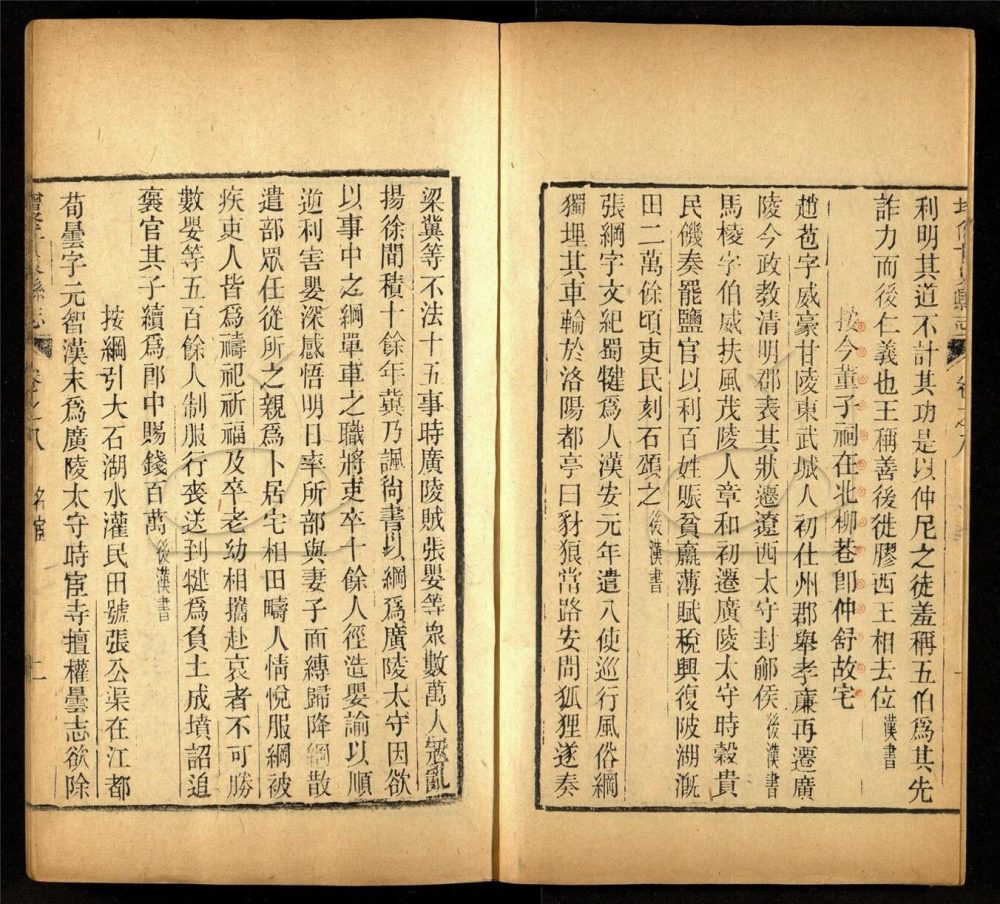 利明其道不計其功是以仲尼之徒羞稱五伯爲其先
詐力而後仁義也王稱善後徙膠西王相去位漢書
按今董子祠在北柳巷卽仲舒故宅
趙苞字威豪甘陵東武城人初仕州郡舉孝廉再遷廣
陵令政教清明郡表其狀遷遼西太守封鄃侯後漢書
馬棱字伯威扶風茂陵人章和初遷廣陵太守時穀貴
民饑奏罷鹽官以利百姓賑貧羸薄賦稅興復陂湖漑
田二萬餘頃吏民刻石頌之後漢書
張綱字文紀蜀犍爲人漢安元年遣八使巡行風俗綱
獨埋其車輪於洛陽都亭曰豺狼當路安問狐狸遂奏
梁冀等不法十五事時廣陵賊張嬰等衆數萬人寇亂
揚徐間積十餘年冀乃諷尚書以綱爲廣陵太守因欲
以事中之綱單車之職將吏卒十餘人徑造嬰諭以順
逆利害嬰深感悟明日率所部與妻子面縛歸降綱散
遣部眾任從所之親爲卜居宅相田疇人情悅服綱被
疾吏人皆爲禱祀祈福及卒老幼相攜赴哀者不可勝
數嬰等五百餘人制服行喪送到犍爲負土成墳詔追
襃官其子續爲郎中賜錢百萬後漢書
按綱引大石湖水灌民田號張公渠在江都
荀曇字元智漢末爲廣陵太守時宦寺擅權曇志欲除
縣志 卷之八 名宦 十一